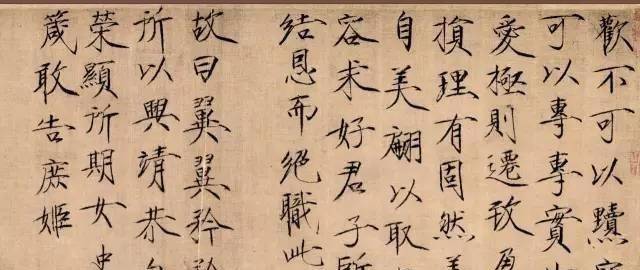 歡不可以黷
可以專專實
愛極則遷致
損理有固然
自美翩以取
容求好君子
結恩而絕職此
故曰翼翼矜
所以興靖恭
榮顯所期女史
箴敢告庶姬